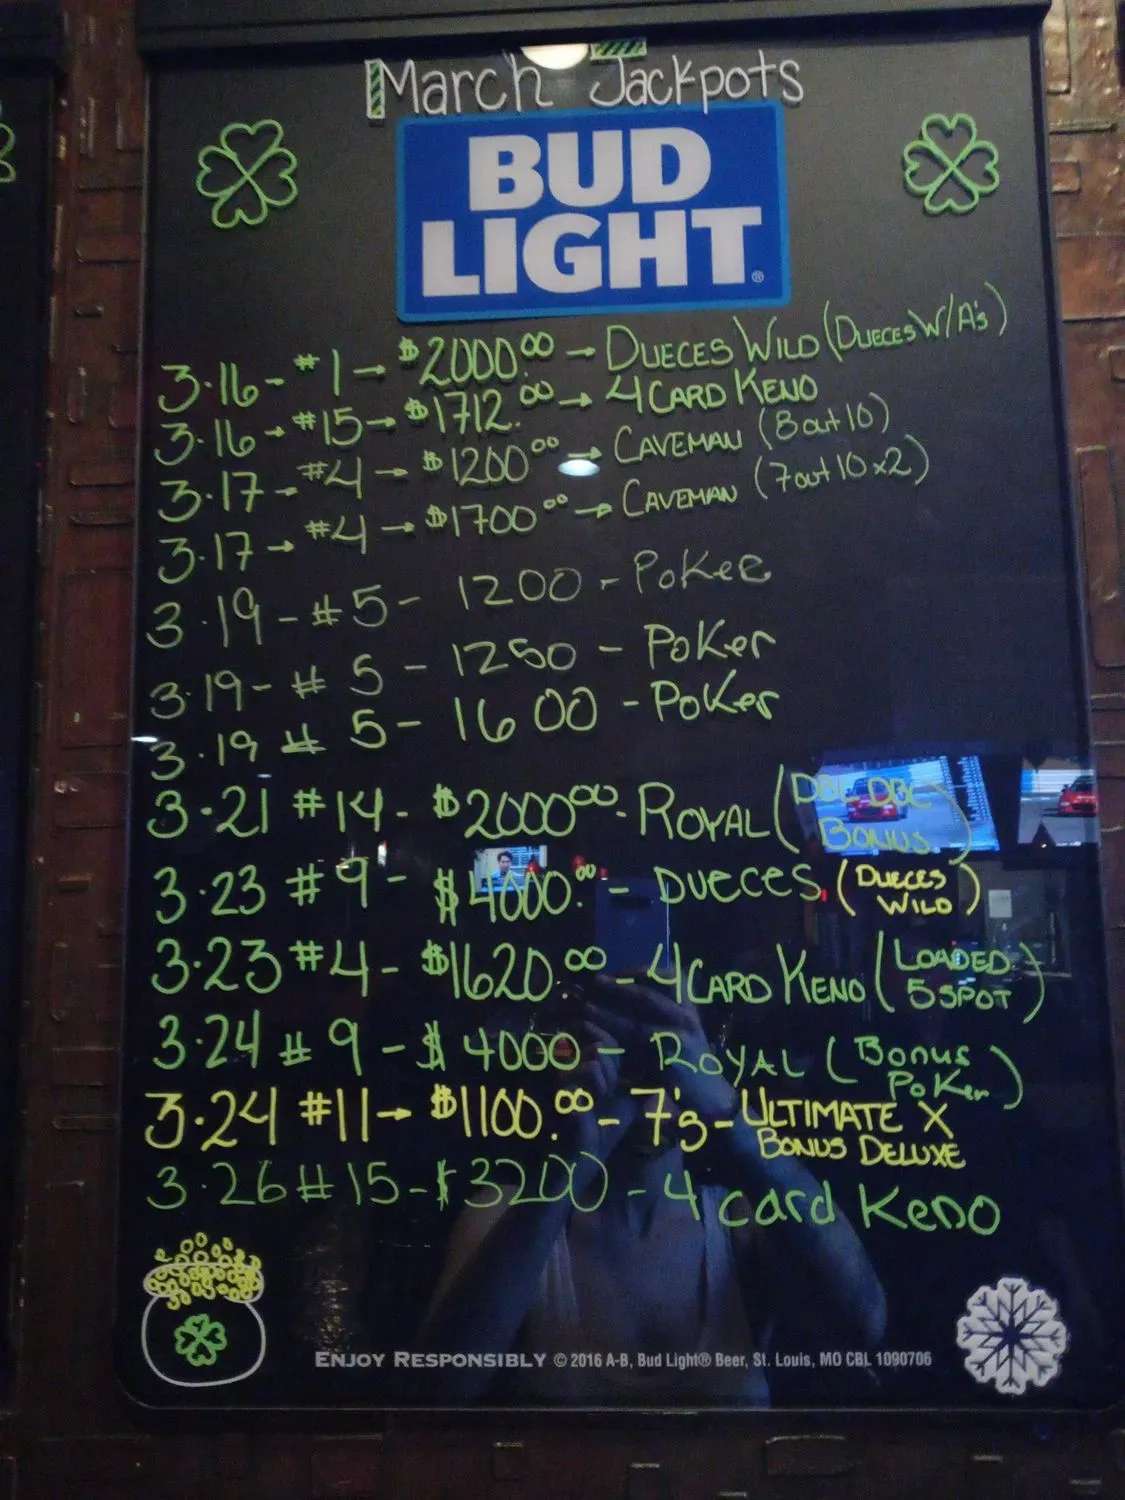 March Jackpots
BUD
LIGHT®
3.16 - #1 → $2000.00 → DUECES WILD (DUECES W/A's)
3.16 → #15 → $1712.00 → 4 CARD KENO
3.17 → #4 → $1200.00 → CAVEMAN (8 out 10)
3.17 → #4 → $1700.00 → CAVEMAN (7 out 10 x2)
3.19 - #5 - 1200 - Poker
3.19 - #5 - 1250 - Poker
3.19 # 5 - 1600 - Poker
3.21 #14 - $2000.00 - ROYAL (DBL DBL BONUS)
3.23 #9 - $4000.00 - DUECES (DUECES WILD)
3.23 #4 - $1620.00 - 4 CARD KENO (LOADED 5 SPOT)
3.24 #9 - $4000 - ROYAL (Bonus Poker)
3.24 #11 → $1100.00 - 7's - ULTIMATE X BONUS DELUXE
3.26 #15 - $3200 - 4 card Keno
ENJOY RESPONSIBLY © 2016 A-B, Bud Light® Beer, St. Louis, MO CBL 1090706